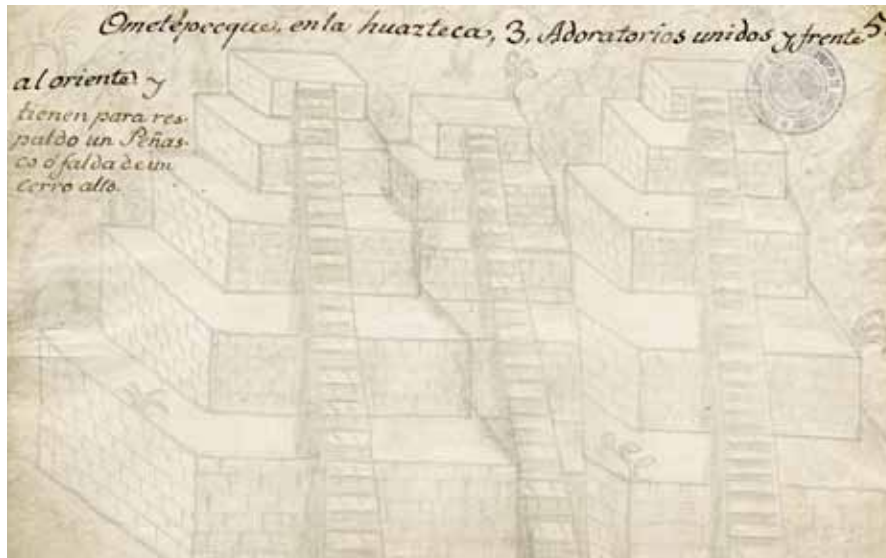 Ometépecque, en la huazteca, 3, Adoratorios unidos y frente 5.
al oriente y
tienen para res-
paldo un Peñas-
co ó falda de un
cerro alto.